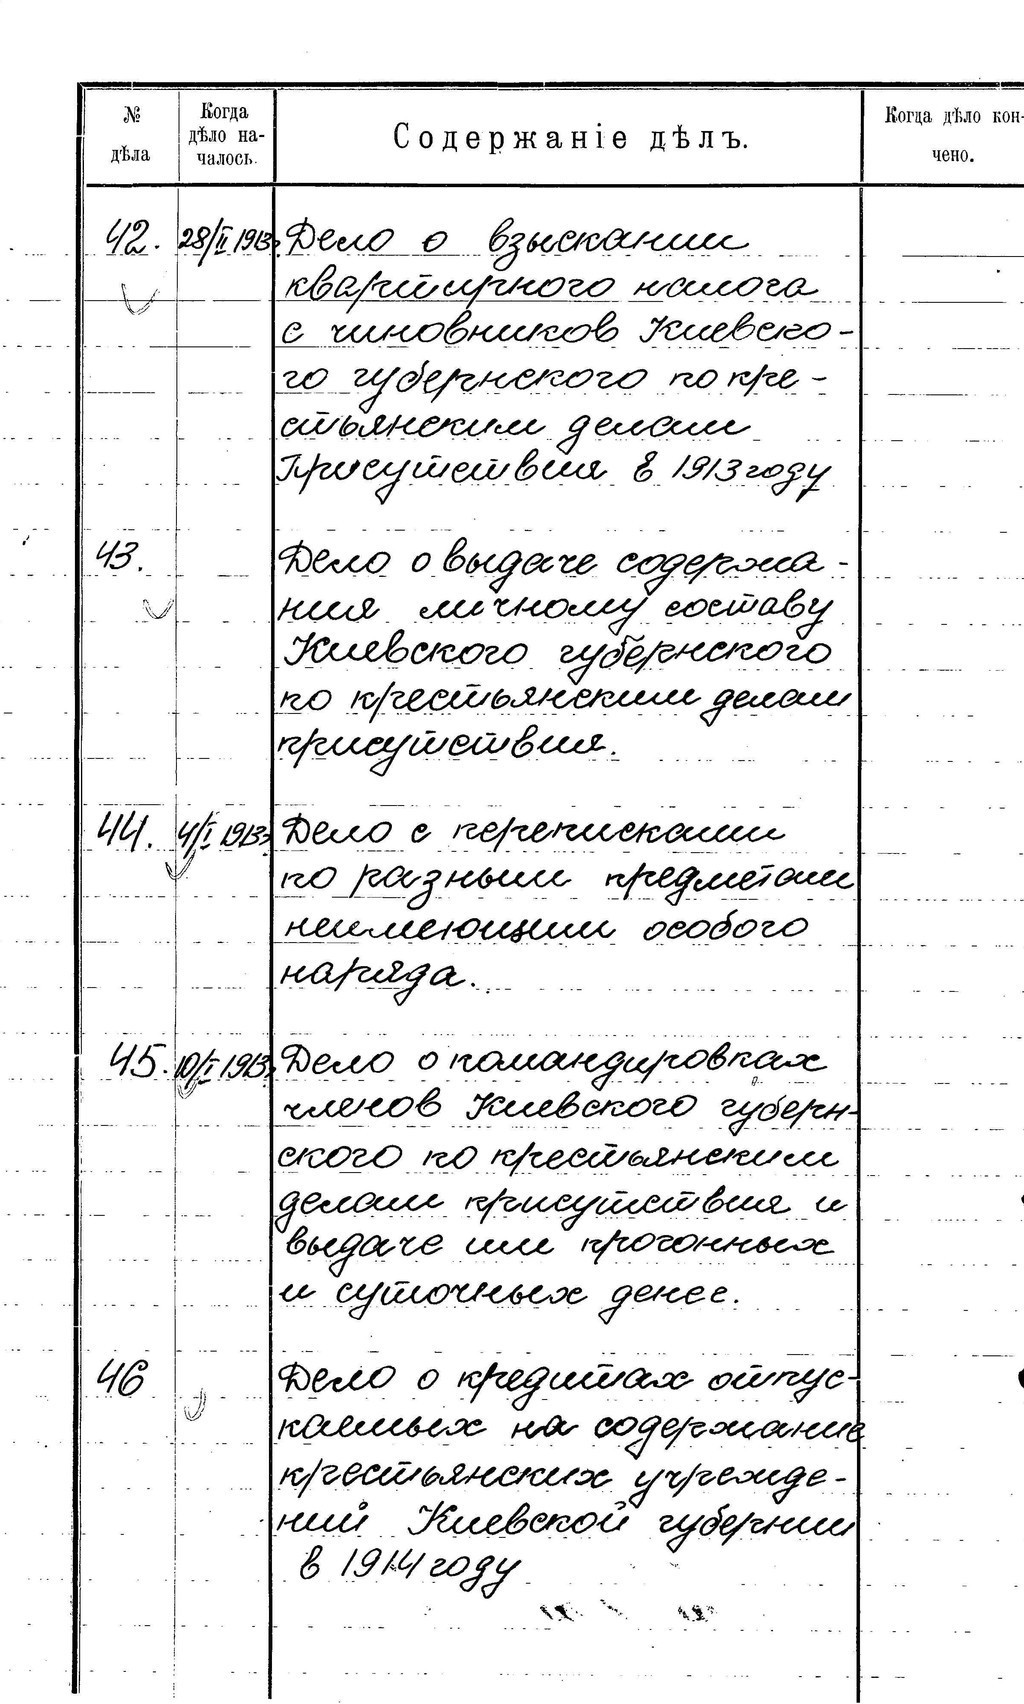 № дѣла
Когда дѣло на-
чалось.
Содержаніе дѣлъ.
Когда дѣло кон-
чено.
42. 28/II 1913г Дело о взыскании
квартирного налога
с чиновников Киевско-
го губернского по кре-
стьянским делам
Присутствия в 1913 году
43. Дело о выдаче содержа-
ния личному составу
Киевского губернского
по крестьянским делам
присутствия.
44. 4/I 1913г. Дело с переписками
по разным предметам
неимеющим особого
наряда.
45. 10/I 1913г Дело о командировках
членов Киевского губерн-
ского по крестьянским
делам присутствия и
выдаче им прогонных
и суточных денег.
46 Дело о кредитах отпус-
каемых на содержание
крестьянских учрежде-
ний Киевской губернии
в 1914 году